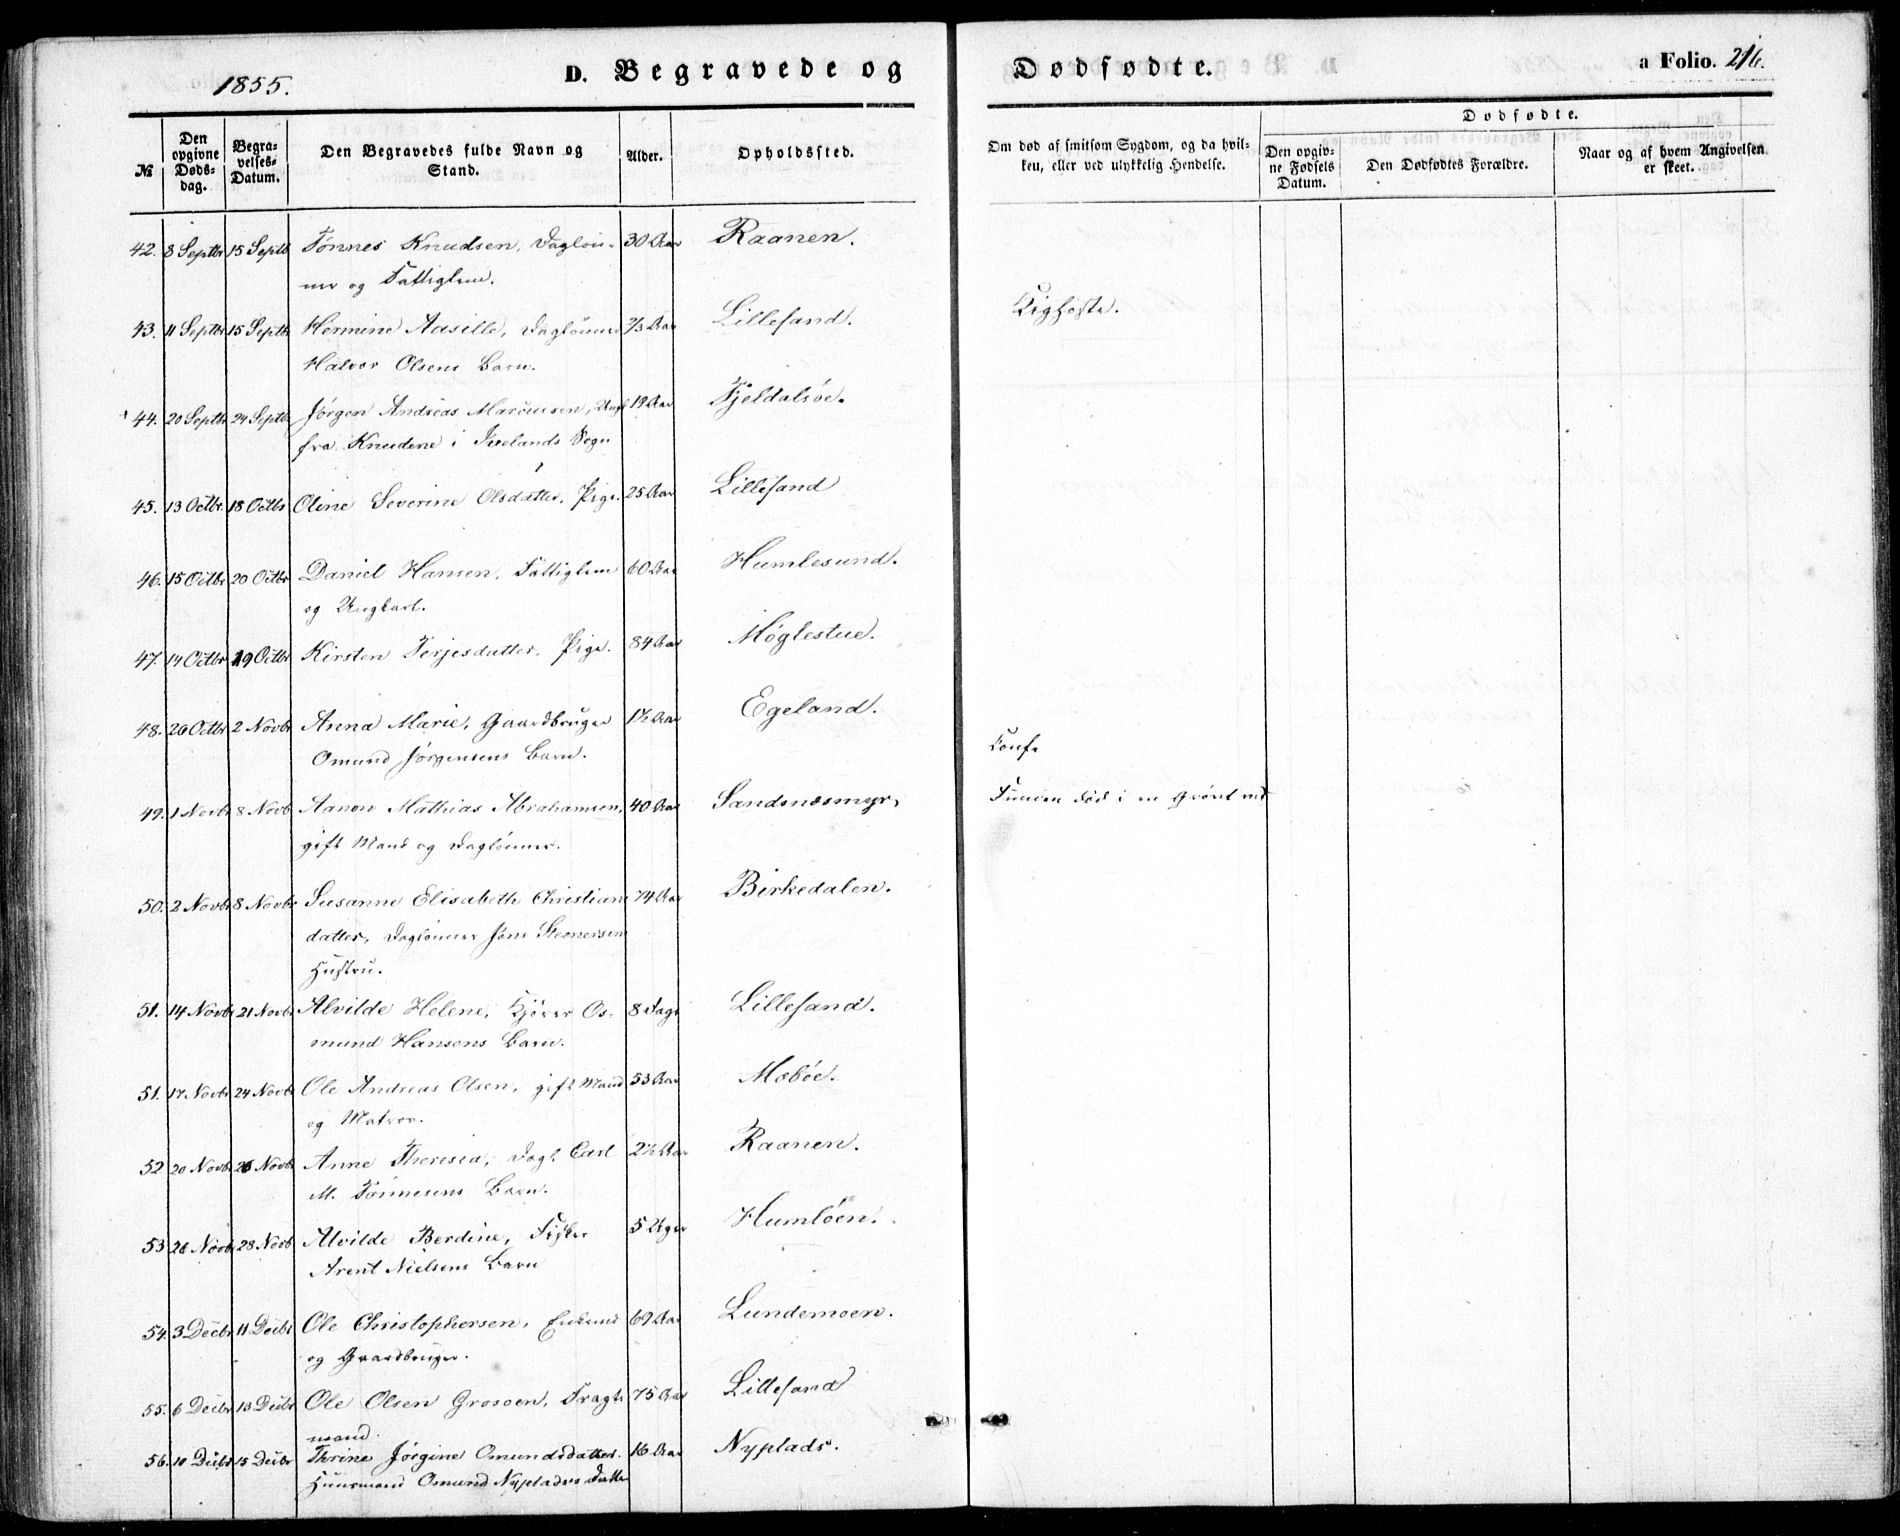 1855.
D. Begravede og Dødfødte.
a Folio. 216.
№
Den opgivne Døds-dag.
Begra-velses-Datum.
Den Begravedes fulde Navn og Stand.
Alder.
Opholdssted.
Om død af smitsom Sygdom, og da hvil-ken, eller ved ulykkelig Hendelse.
Dødfødte.
Den opgiv-ne Fødsels Datum.
Den Dødfødtes Forældre.
Naar og af hvem Angivelsen er skeet.
42. 8 Septbr 15 Septb Tønnes Knudsen, Dagløn- 30 Aar Raanen.
ner og Fattiglem.
43. 11 Septbr 15 Septbr Hermine Aasille, Daglønner 2/3 Aar Lillesand. Kighoste.
Halvor Olsens Barn.
44. 20 Septbr 24 Septbr Jørgen Andreas Marcussen, Ungk 19 Aar Fjeldalsøe.
fra Knudene i Ivelands Sogn
45. 13 Octbr. 18 Octbr Oline Severine Olsdatter, Pige. 25 Aar Lillesand
46. 15 Octbr 20 Octbr Daniel Hansen, Fattiglem 60 Aar Humlesund.
og Ungkarl.
47. 14 Octbr 19 Octbr Kirsten Terjesdatter. Pige. 84 Aar Møglestue.
48. 26 Octbr 2 Novbr Anna Marie, Gaardbruger 1½ Aar Egeland.
Omund Jørgensens Barn.
49. 1 Novbr 8 Novb Aanon Mathias Abrahamsen, 40 Aar Sandsnæsmyr, Funden død i en Grøvt ved
gift Mand og Daglønner.
50. 2 Novbr 8 Novbr Susanne Elisabeth Christians 74 Aar Birkedalen.
datter, Daglønner Jens Steenersens
Hustru.
51. 14 Novbr 21 Novbr Alvilde Helene, Kjører Os- 8 Dage Lillesand.
mund Hansens Barn.
51. 17 Novbr 24 Novbr Ole Andreas Olsen, gift Mand 53 Aar Mæbøe.
og Matros.
52 20 Novbr 26 Novbr Anne Theresia, Dagl. Carl 2½ Aar Raanen.
M. Tønnesens Barn.
53 26 Novbr 28 Novb Alvilde Berdine, Fisker 5 Uger Humløen.
Arent Nielsens Barn
54. 3 Decbr 11 Decbr Ole Christophersen, Enkemd 69 Aar Lundemoen.
og Gaardbruger.
55. 6 Decbr 13 Decbr Ole Olsen Grosoen, Fragt- 75 Aar Lillesand
mand.
56. 10 Decbr 15 Decbr Thrine Jørgine Omundsdatter. 16 Aar Nyplads.
Huusmand Omund Nyplads's Datter